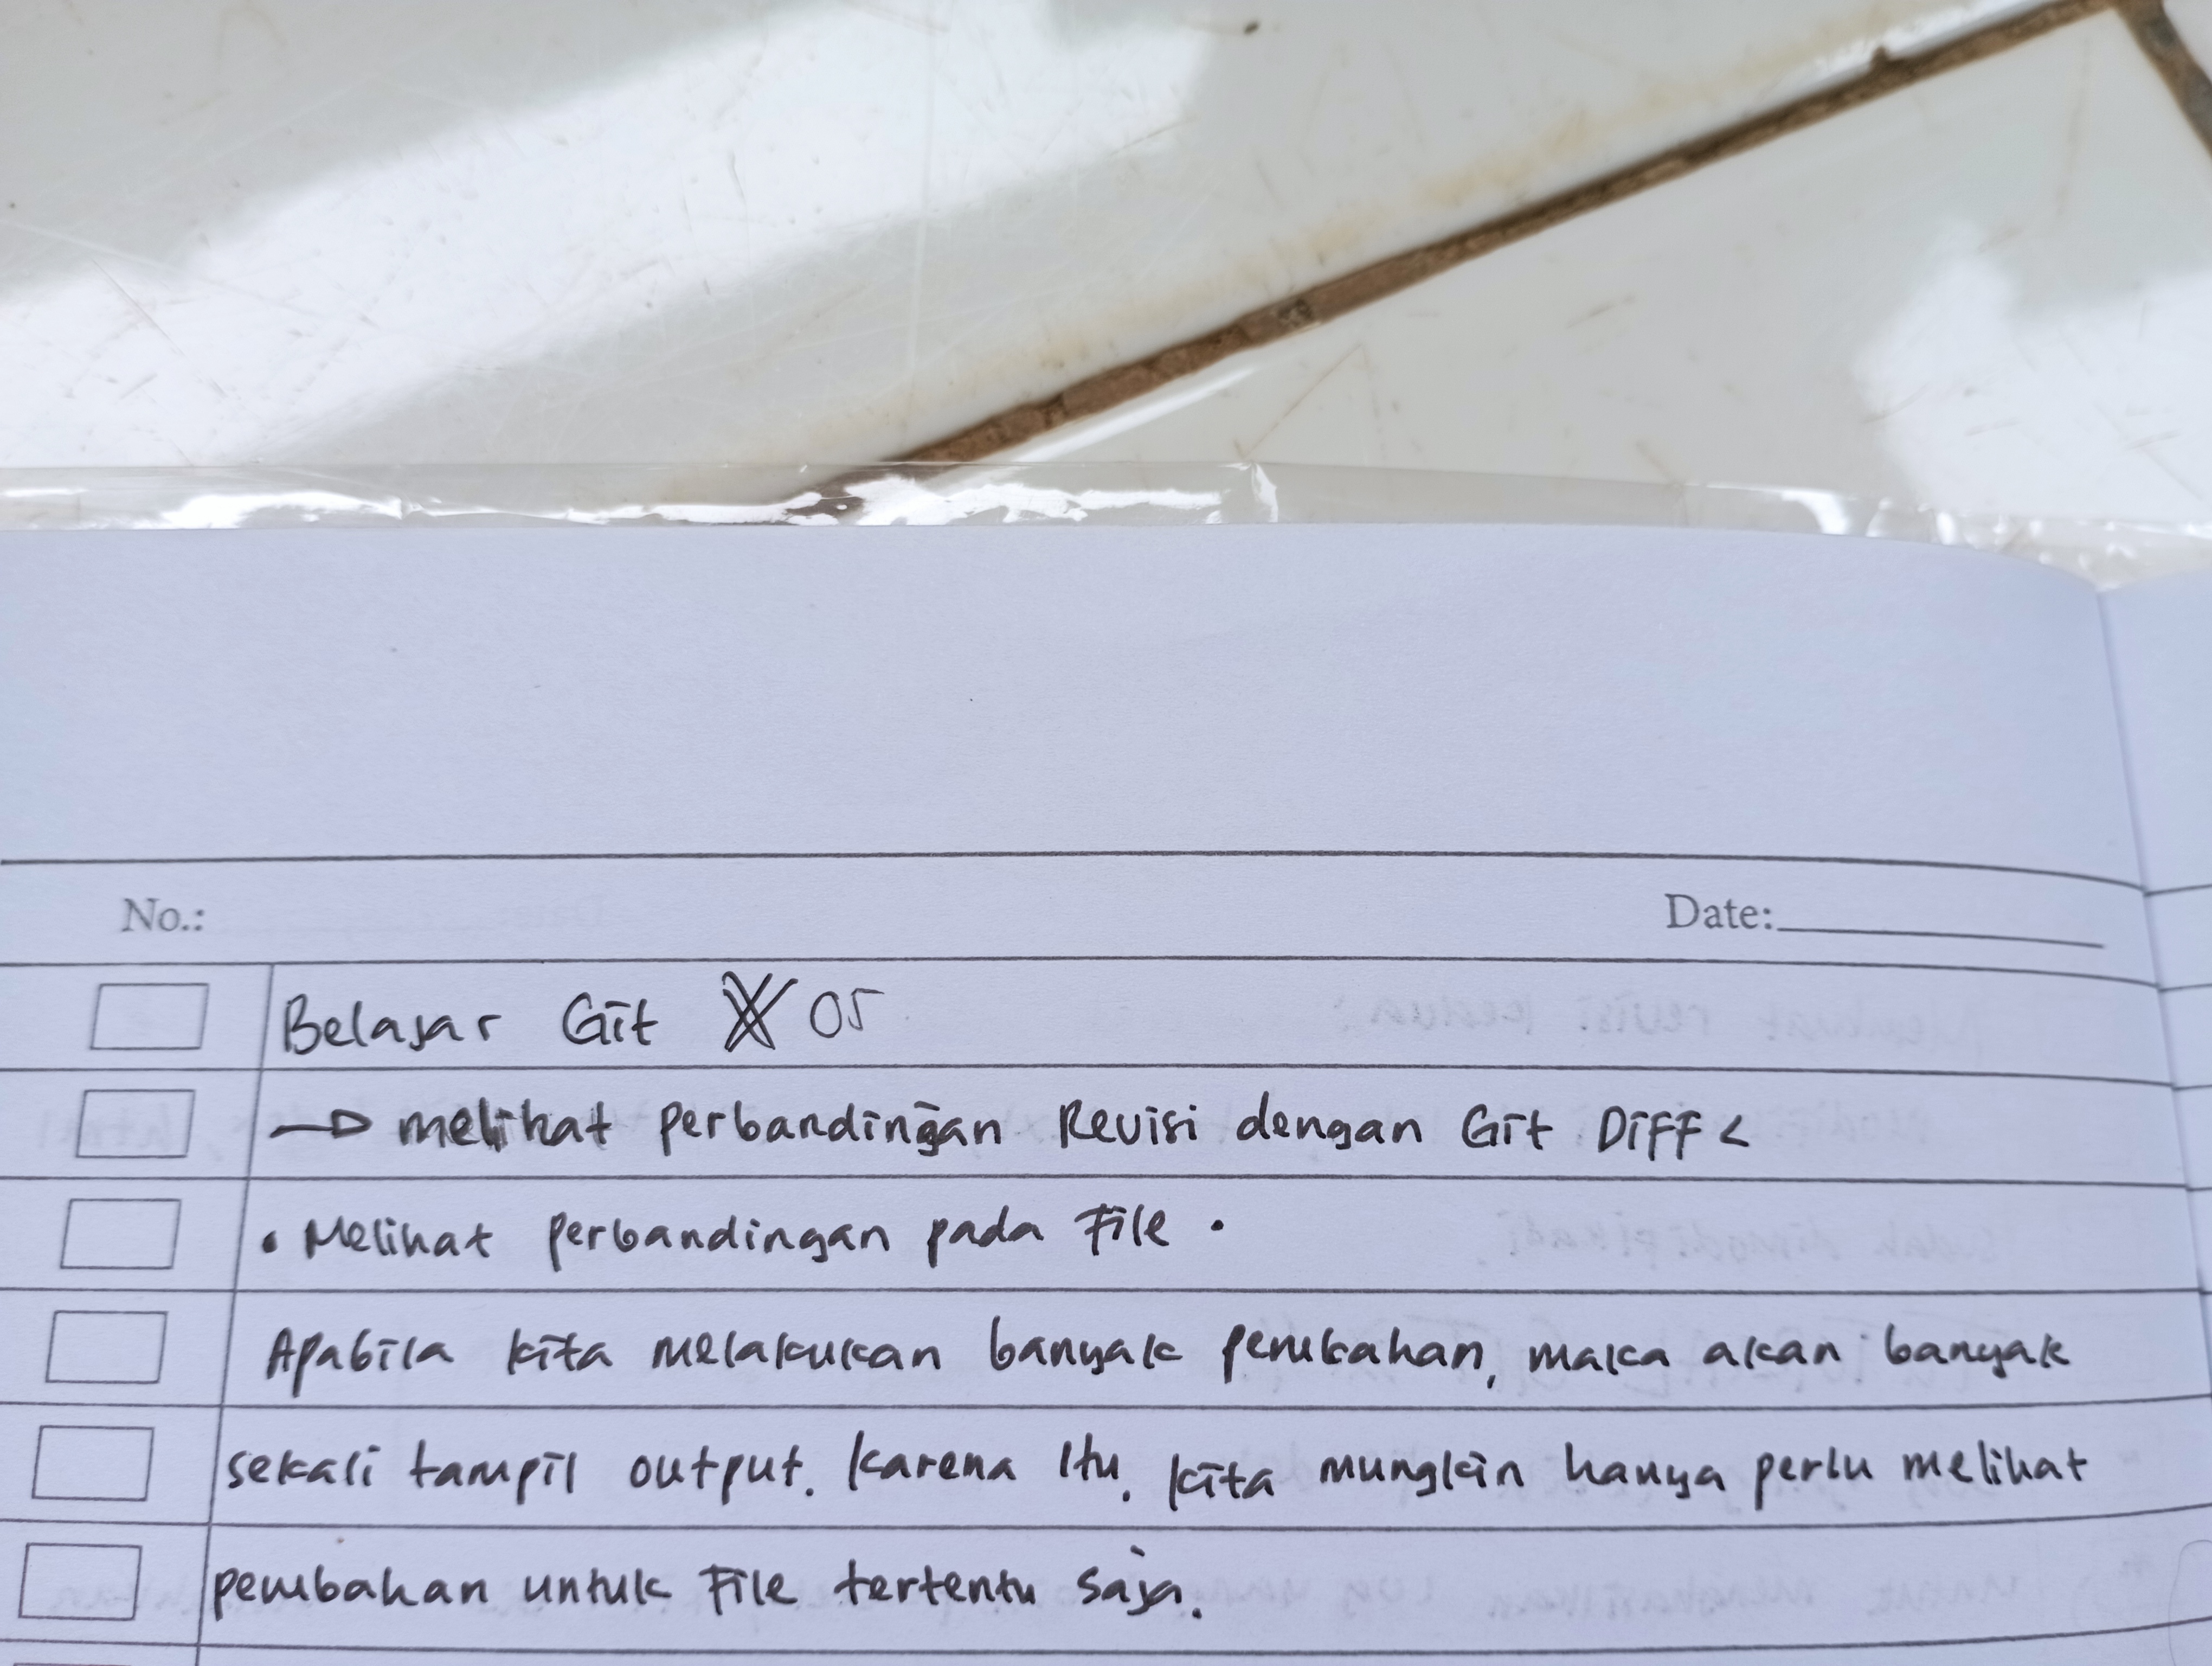 No.: Date:
Belajar Git 05
→ melihat perbandingan Revisi dengan Git Diff <
• Melihat perbandingan pada File •
Apabila kita melakukan banyak perubahan, maka akan banyak
sekali tampil output. Karena Itu, kita mungkin hanya perlu melihat
perubahan untuk File tertentu saja.